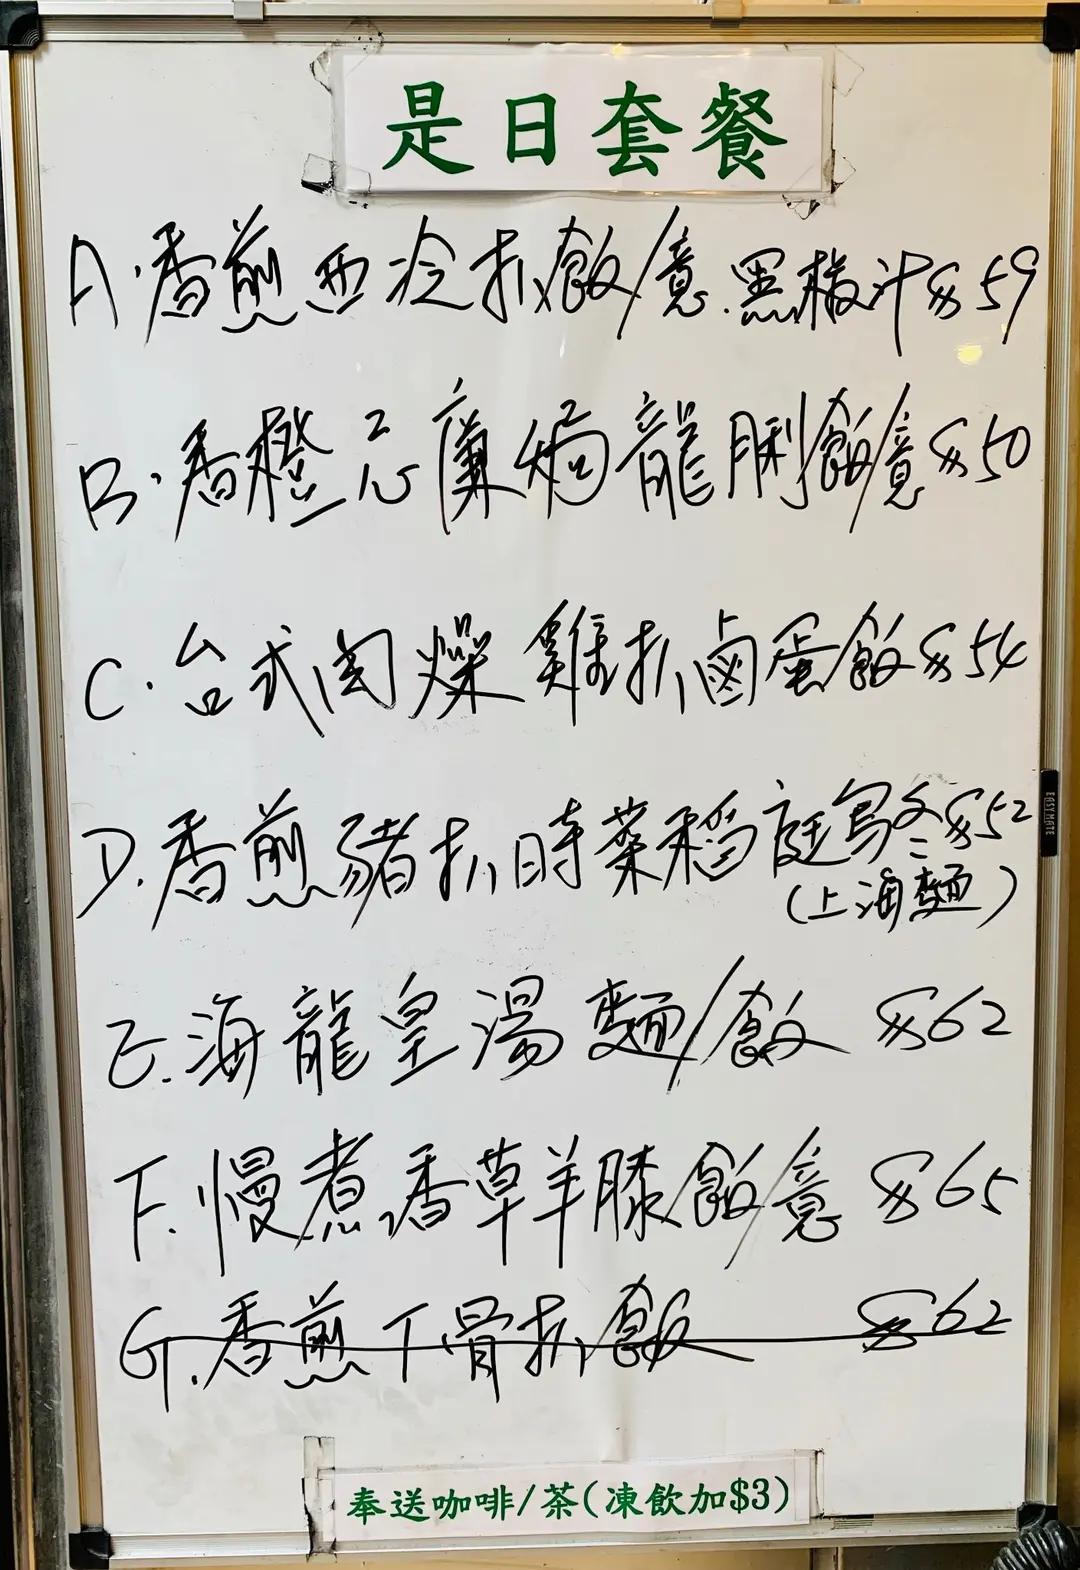 是日套餐
A.香煎西冷扒飯/意.黑椒汁$59
B.香橙忌廉焗龍脷飯/意$50
C.台式肉燥雞扒鹵蛋飯$54
D.香煎豬扒時菜稻庭烏冬$52
(上海麵)
E.海龍皇湯麵/飯 $62
F.慢煮香草羊膝飯/意 $65
G.香煎T骨扒飯 $62
奉送咖啡/茶(凍飲加$3)
EASYMATE